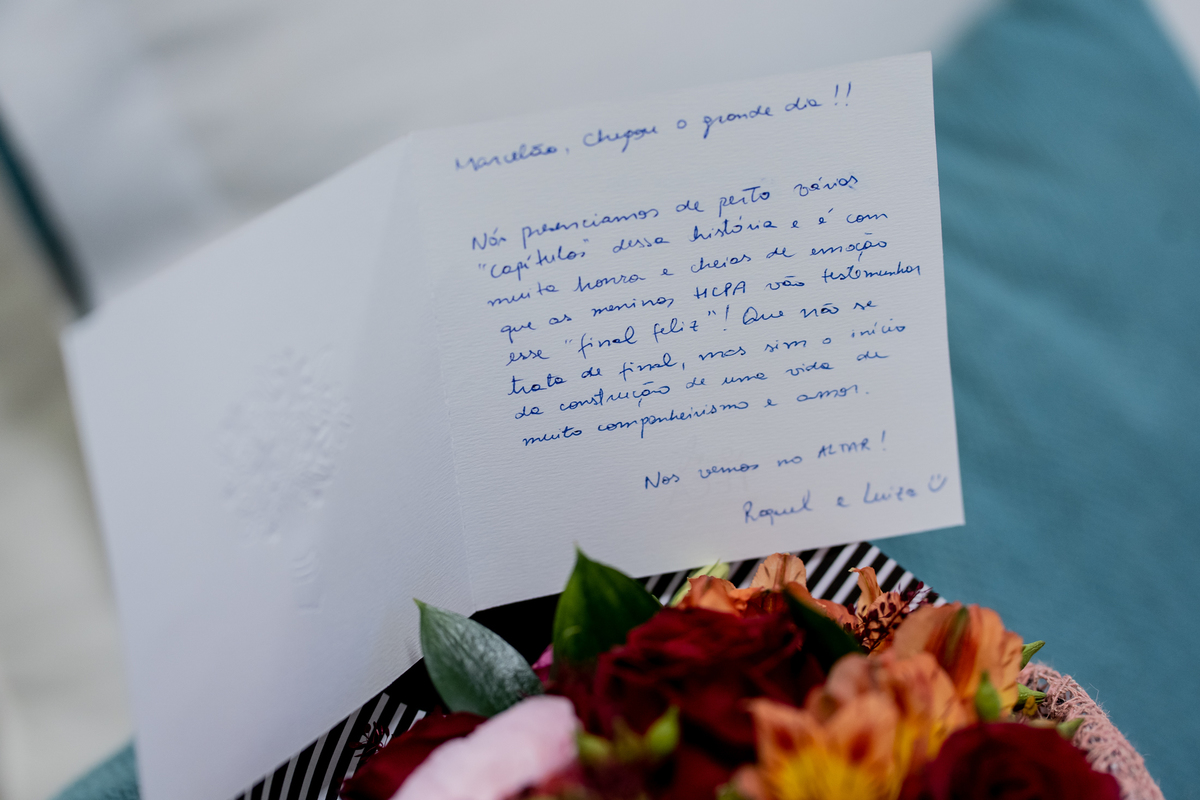 Marcelão, chegou o grande dia!!
Nós presenciamos de perto vários
"capítulos" dessa história e é com
muita honra e cheias de emoção
que as meninas HCPA vão testemunhar
esse "final feliz"! Que não se
trata de final, mas sim o início
da construção de uma vida de
muito companheirismo e amor.
Nos vemos no ALTAR!
Raquel e Luiza